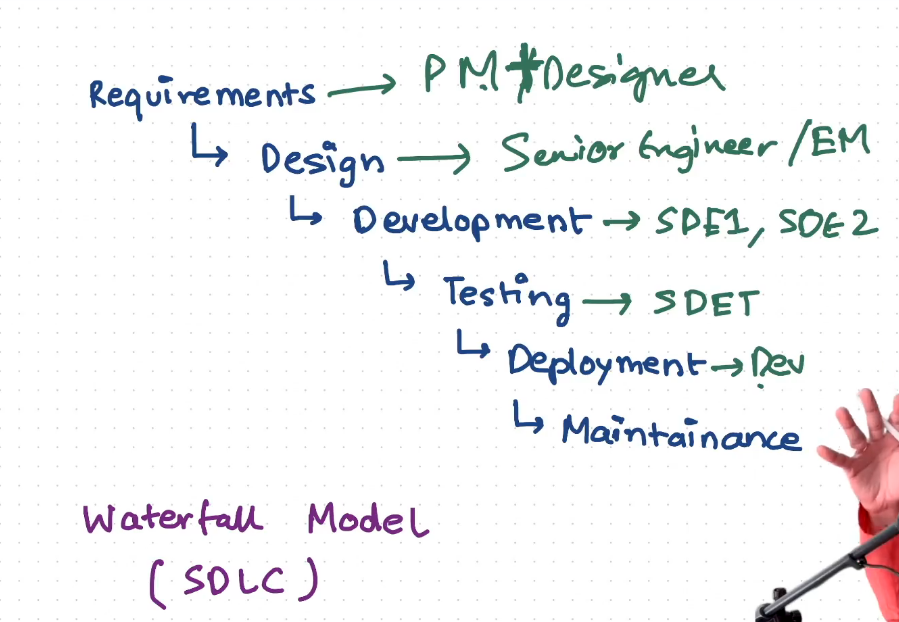 Requirements → PM + Designer
↳ Design → Senior Engineer / EM
↳ Development → SDE1, SDE2
↳ Testing → SDET
↳ Deployment → Dev
↳ Maintainance
Waterfall Model
(SDLC)